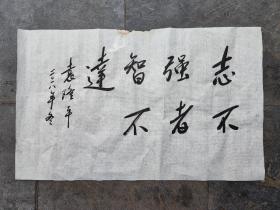 志不
强者
智不
達
袁隆平
二〇〇八年冬